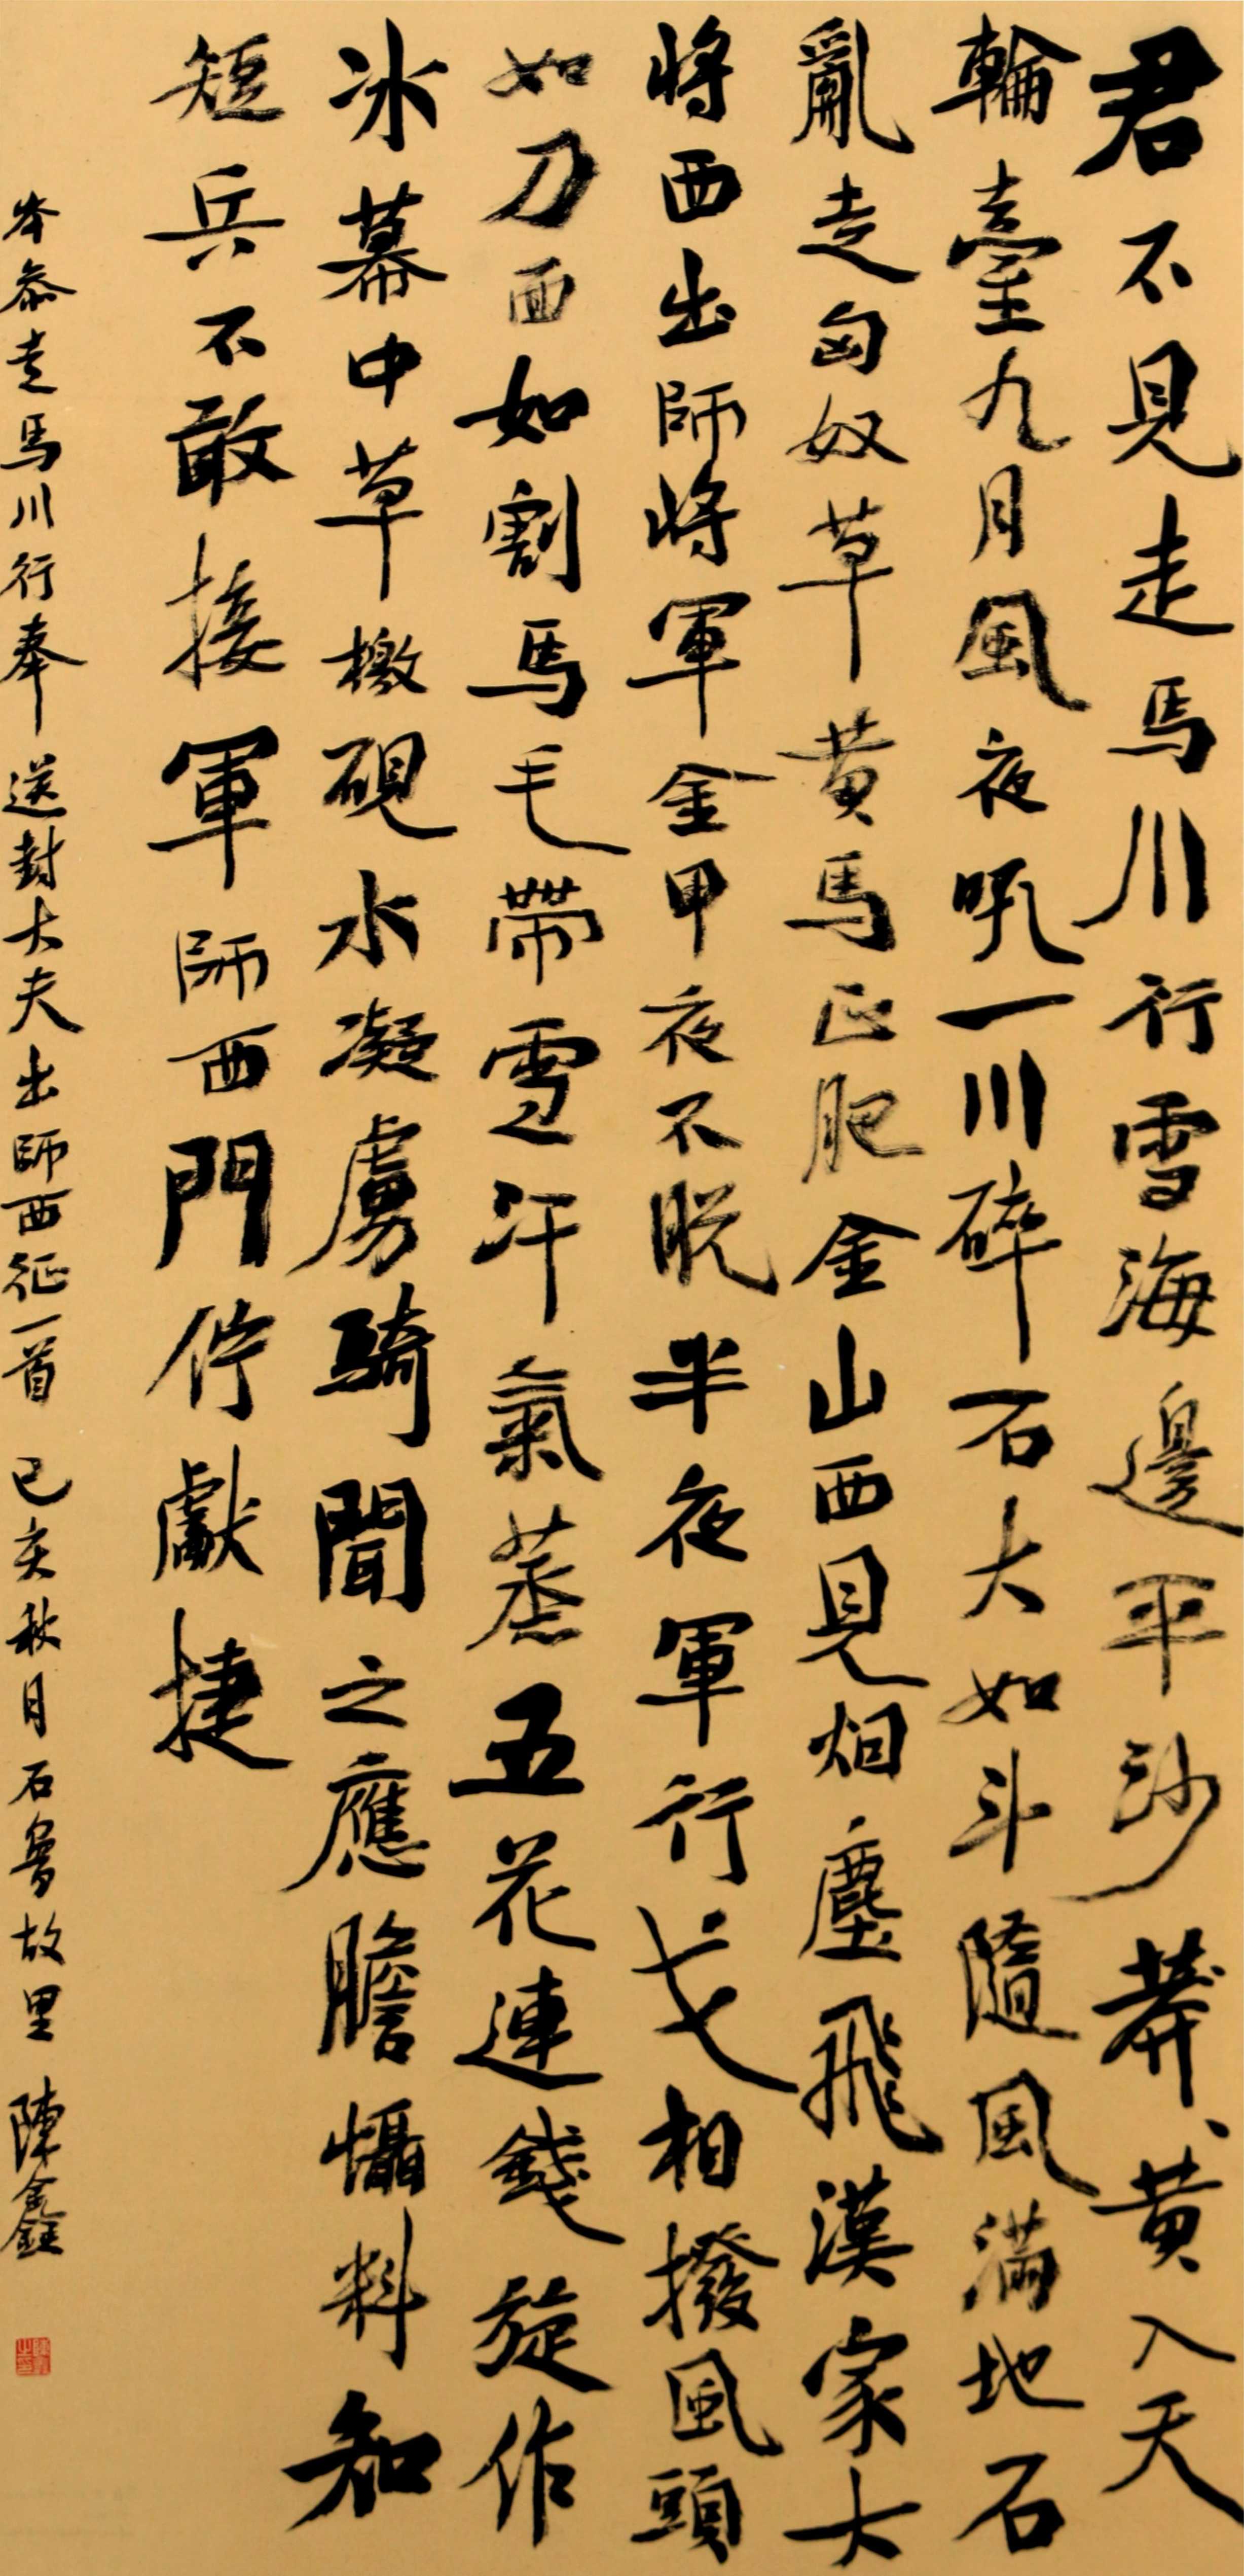 君不見走馬川行雪海邊平沙莽、黄入天
輪臺九月風夜吼一川碎石大如斗隨風滿地石
亂走匈奴草黄馬正肥金山西見烟塵飛漢家大
將西出師將軍金甲夜不脱半夜軍行戈相撥風頭
如刀面如割馬毛帶雪汗氣蒸五花連錢旋作
冰幕中草檄硯水凝虜騎聞之應膽懾料知
短兵不敢接軍師西門佇獻捷
岑參走馬川行奉送封大夫出師西征一首 己亥秋月石魯故里 陳鑫